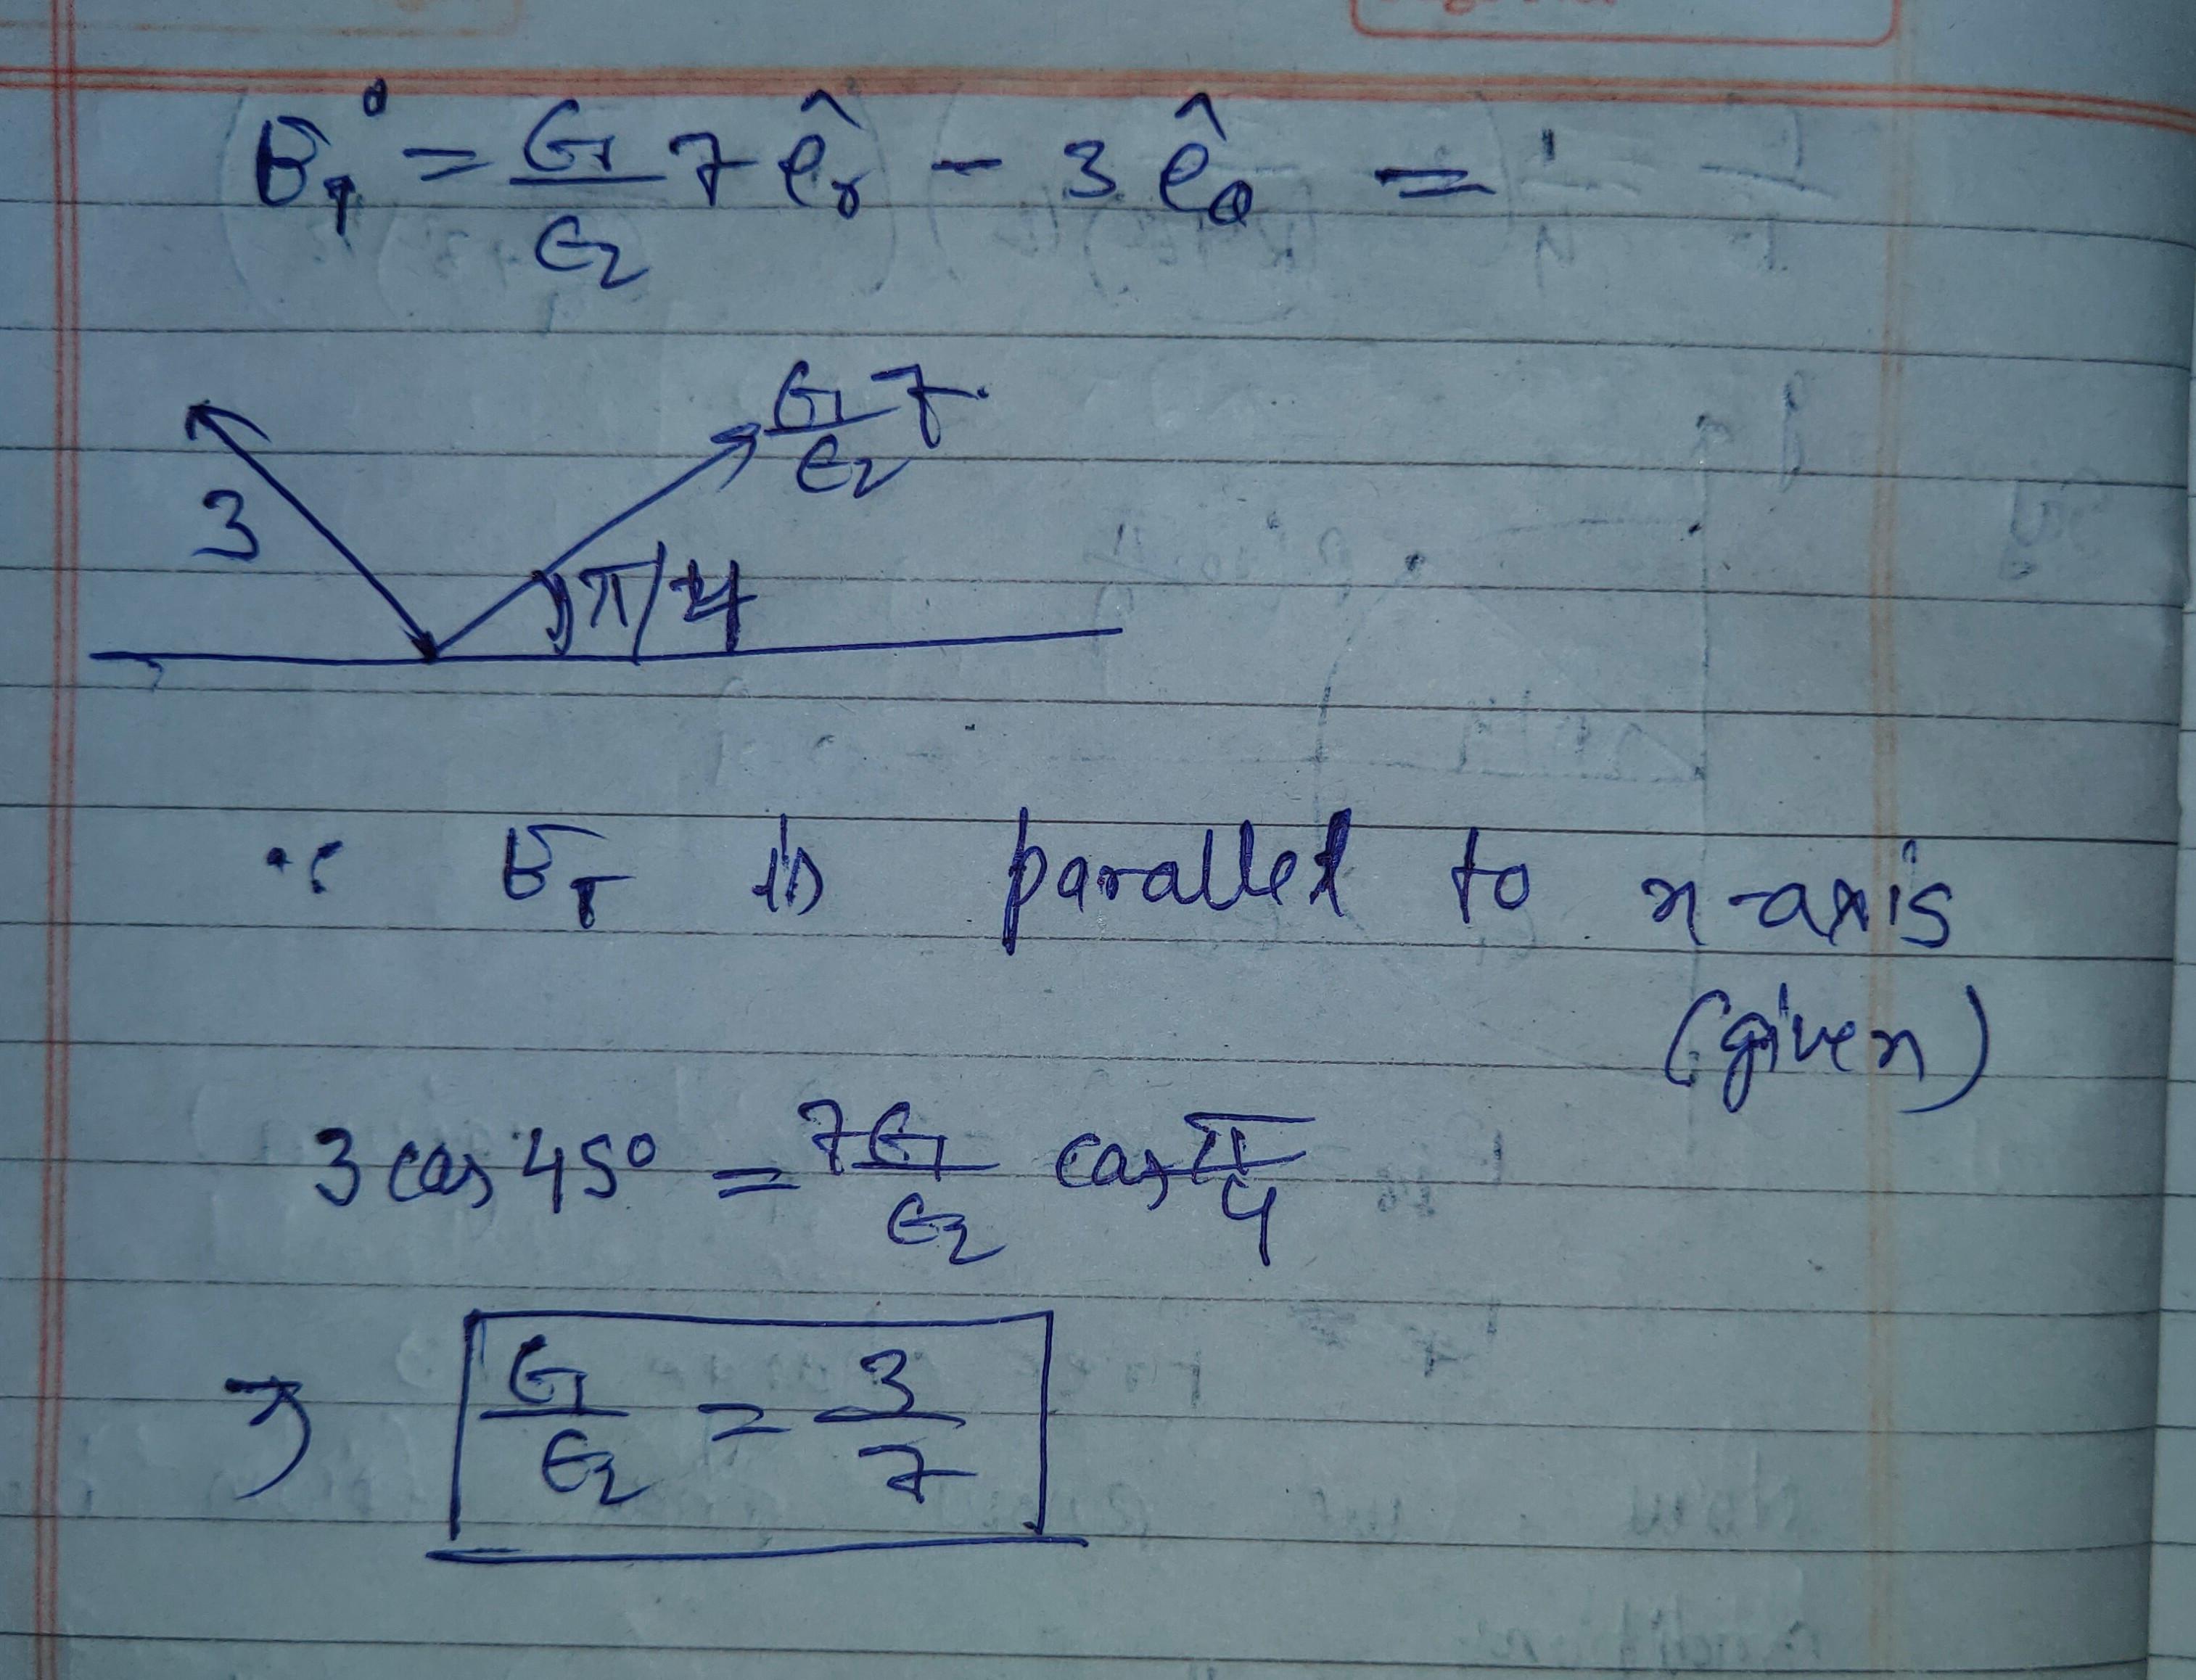 E_T = ϵ₁/ϵ₂ 7 ê_r - 3 ê_θ =
3
ϵ₁/ϵ₂ 7
π/4
∵ E_T is parallel to x-axis
(given)
3 cos 45° = 7ϵ₁/ϵ₂ cos π/4
⇒ ϵ₁/ϵ₂ = 3/7